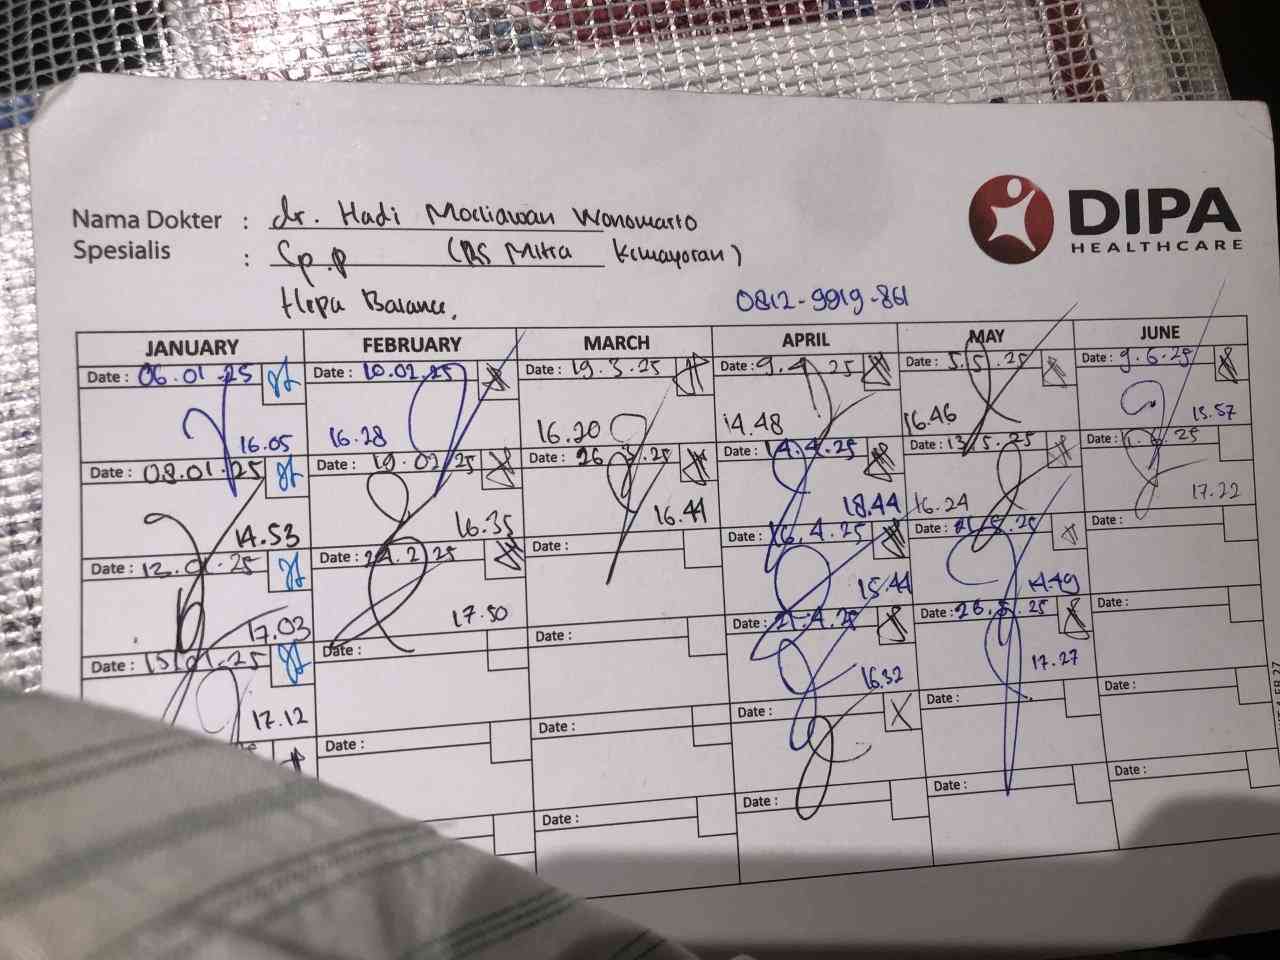 DIPA
HEALTHCARE
Nama Dokter : dr. Hadi Wonowarto
Spesialis : Sp.p (RS Mitra Kemayoran)
Hepa Balance.
0812-9919-861
JANUARY FEBRUARY MARCH APRIL MAY JUNE
Date : 06.01.25 Date : 10.02.25 Date : 19.3.25 Date : 9.4.25 Date : 5.5.25 Date : 9.6.25
16.05 16.28 16.20 14.48 16.46 15.57
Date : 08.01.25 Date : 19.02.25 Date : 26.3.25 Date : 14.4.25 Date : 13.5.25 Date :
14.53 16.35 16.44 18.44 16.24 17.22
Date : 13.01.25 Date : 24.2.25 Date : Date : 16.4.25 Date : 21.5.25 Date :
17.03 17.50 15.44 14.49
Date : 15.01.25 Date : Date : Date : 21.4.25 Date : 26.5.25 Date :
17.12 16.32 17.27
Date : Date : Date : Date : Date :
Date : Date : Date : Date :